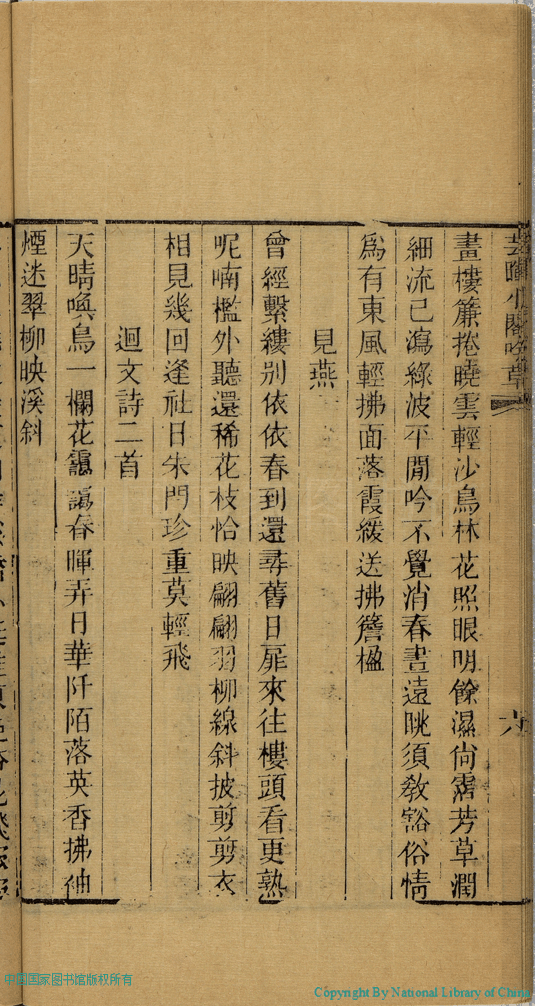 芸暉小閣吟草
六
畫樓簾捲曉雲輕沙鳥林花照眼明餘濕尚霑芳草潤
細流已瀉綠波平閒吟不覺消春晝遠眺須教豁俗情
為有東風輕拂面落霞緩送拂簷楹
見燕
曾經繫縷別依依春到還尋舊日扉來往樓頭看更熟
呢喃檻外聽還稀花枝恰映翩翩羽柳線斜披剪剪衣
相見幾回逢社日朱門珍重莫輕飛
迴文詩二首
天晴喚鳥一欄花靄靄春暉弄日華阡陌落英香拂袖
煙迷翠柳映溪斜
中国国家图书馆版权所有
Copyright By National Library of China